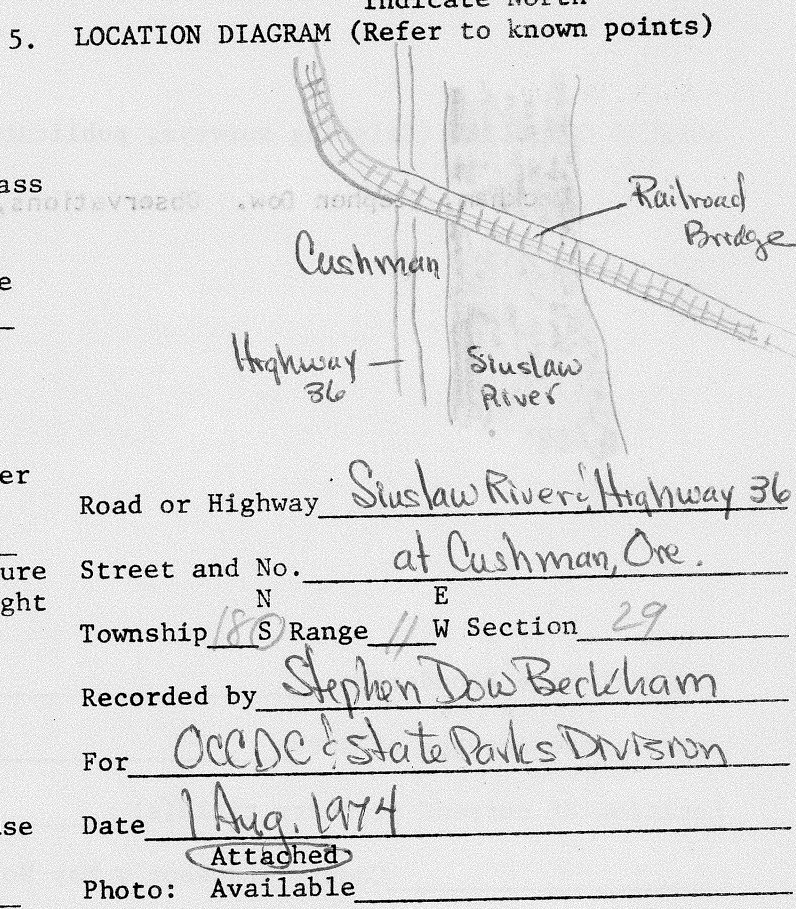 Indicate North
5. LOCATION DIAGRAM (Refer to known points)
ass
Railroad
Bridge
Cushman
e
Highway
36
Siuslaw
River
er
Road or Highway Siuslaw River & Highway 36
ure Street and No. at Cushman, Ore.
ght N E
Township 18 S Range 11 W Section 29
Recorded by Stephen Dow Beckham
For OCCDC & State Parks Division
se Date 1 Aug. 1974
Attached
Photo: Available